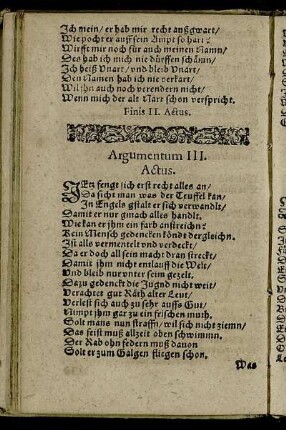 Ich mein / er hab mir recht außgwart /
Wie pocht er auff sein Ampt so hart:
Wirfft mir noch für auch meinen Namn /
Des hab ich mich nie dürffen schämn /
Ich heiß Vnart / vnd bleib Vnart /
Den Namen hab ich nie verkart /
Wil ihn auch noch verendern nicht /
Wenn mich der alt Nart schon verspricht.
Finis II. Actus.
Argumentum III.
Actus.
JEtz fengt sich erst recht alles an /
Da sicht man was der Teuffel kan /
In Engels gstalt er sich verwandlt /
Damit er nur gmach alles handlt.
Wie kan er ihm ein farb anstreichn?
Kein Mensch gedencken köndt dergleichn.
Ist alls vermentelt vnd verdeckt /
Da er doch all sein macht dran streckt /
Damit ihm nicht entlauff die Welt /
Vnd bleib nur vnter seim gezelt.
Dazu gedenckt die Jugnd nicht weit /
Verachtet gut Räth alter Leut /
Verlest sich auch zu sehr auffs Gut /
Nimpt ihm gar zu ein frischen muth.
Solt mans nun straffn / wil sich nicht ziemn /
Das feist muß allzeit oben schwimmn.
Der Rab ohn federn muß dauon
Solt er zum Galgen fliegen schon.
Was